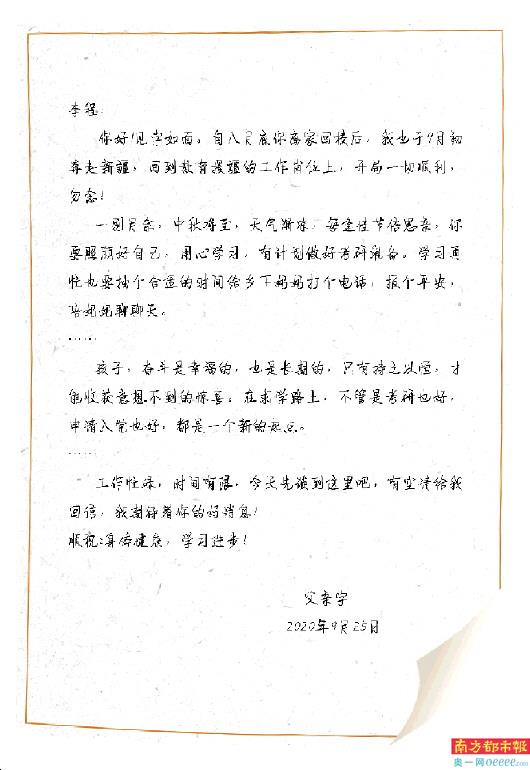 李程:
你好!见字如面。自八月底你离家回校后，我也于9月初
奔赴新疆，回到教育援疆的工作岗位上，开局一切顺利，
勿念!
一别月余，中秋将至，天气渐凉，每逢佳节倍思亲，你
要照顾好自己，用心学习，有计划做好考研准备。学习再
忙也要抽个合适的时间给乡下奶奶打个电话，报个平安，
陪奶奶聊聊天。
……
孩子，奋斗是幸福的，也是长期的，只有持之以恒，才
能收获意想不到的惊喜。在求学路上，不管是考研也好，
申请入党也好，都是一个新的起点。
……
工作忙碌，时间有限，今天先谈到这里吧，有空请给我
回信，我期待着你的好消息!
顺祝:身体健康，学习进步!
父亲字
2020年9月25日
南方都市報
奥一网oeeee.com